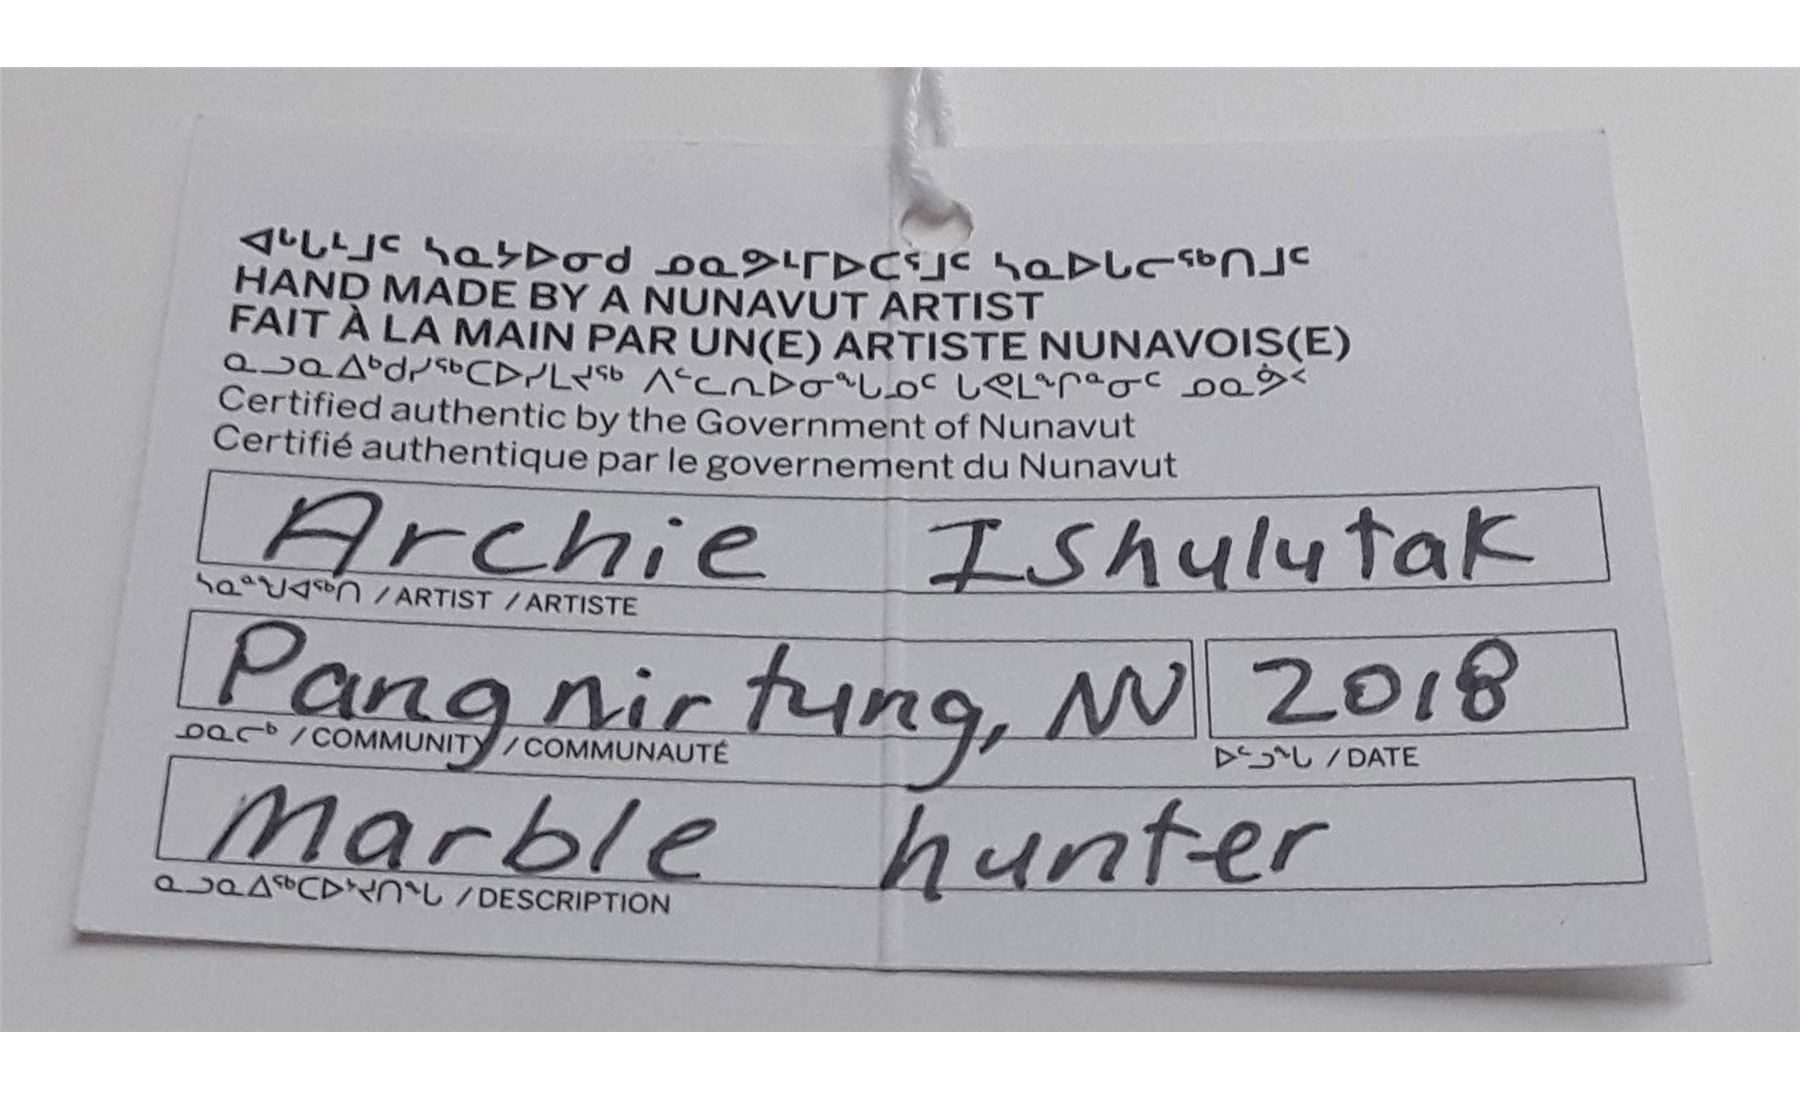 ᐊᒡᒐᒻᒧᑦ ᓴᓇᔭᐅᓂᑯ ᓄᓇᕗᒻᒥᐅᑕᕐᒧᑦ ᓴᓇᐅᒐᓕᖅᑎᒧᑦ
HAND MADE BY A NUNAVUT ARTIST
FAIT À LA MAIN PAR UN(E) ARTISTE NUNAVOIS(E)
ᓇᓗᓇᐃᒃᑯᓯᖅᑕᐅᓯᒪᔪᖅ ᐱᓪᓚᕆᐅᓂᖓᓄᑦ ᒐᕙᒪᒃᑯᓐᓂᑦ ᓄᓇᕘᑉ
Certified authentic by the Government of Nunavut
Certifié authentique par le governement du Nunavut
Archie Ishulutak
ᓴᓇᙳᐊᖅᑎ / ARTIST / ARTISTE
Pangnirtung, NV 2018
ᓄᓇᓕᒃ / COMMUNITY / COMMUNAUTÉ ᐅᓪᓗᖓ / DATE
Marble hunter
ᓇᓗᓇᐃᖅᑕᐅᔾᔪᑎᖓ / DESCRIPTION